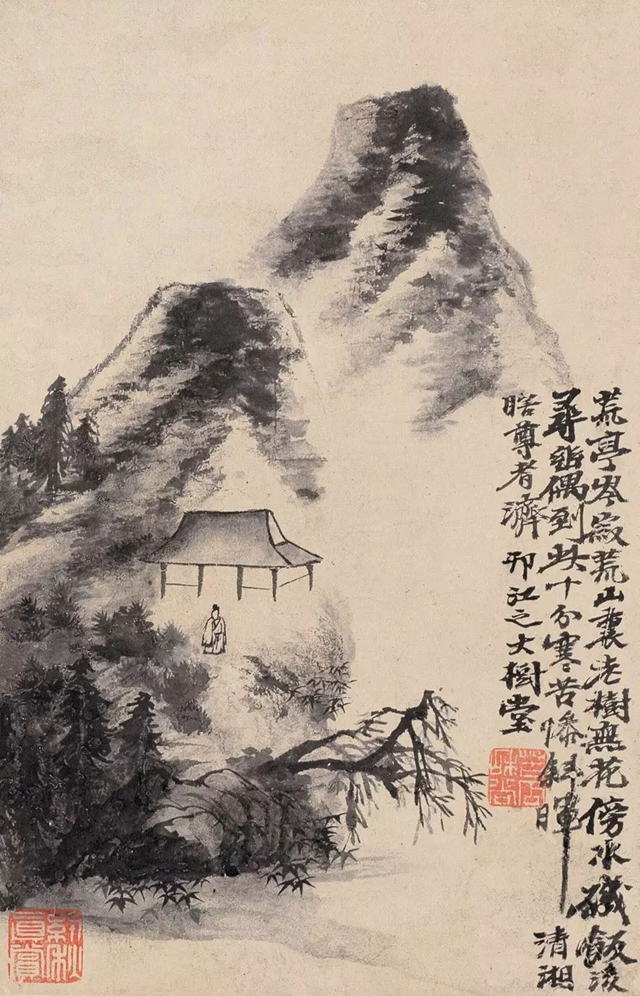 荒亭岑寂荒山裏老樹無花傍水磯飯後
尋詩偶到此十分寒苦慘斜暉 清湘
瞎尊者濟 邗江之大樹堂